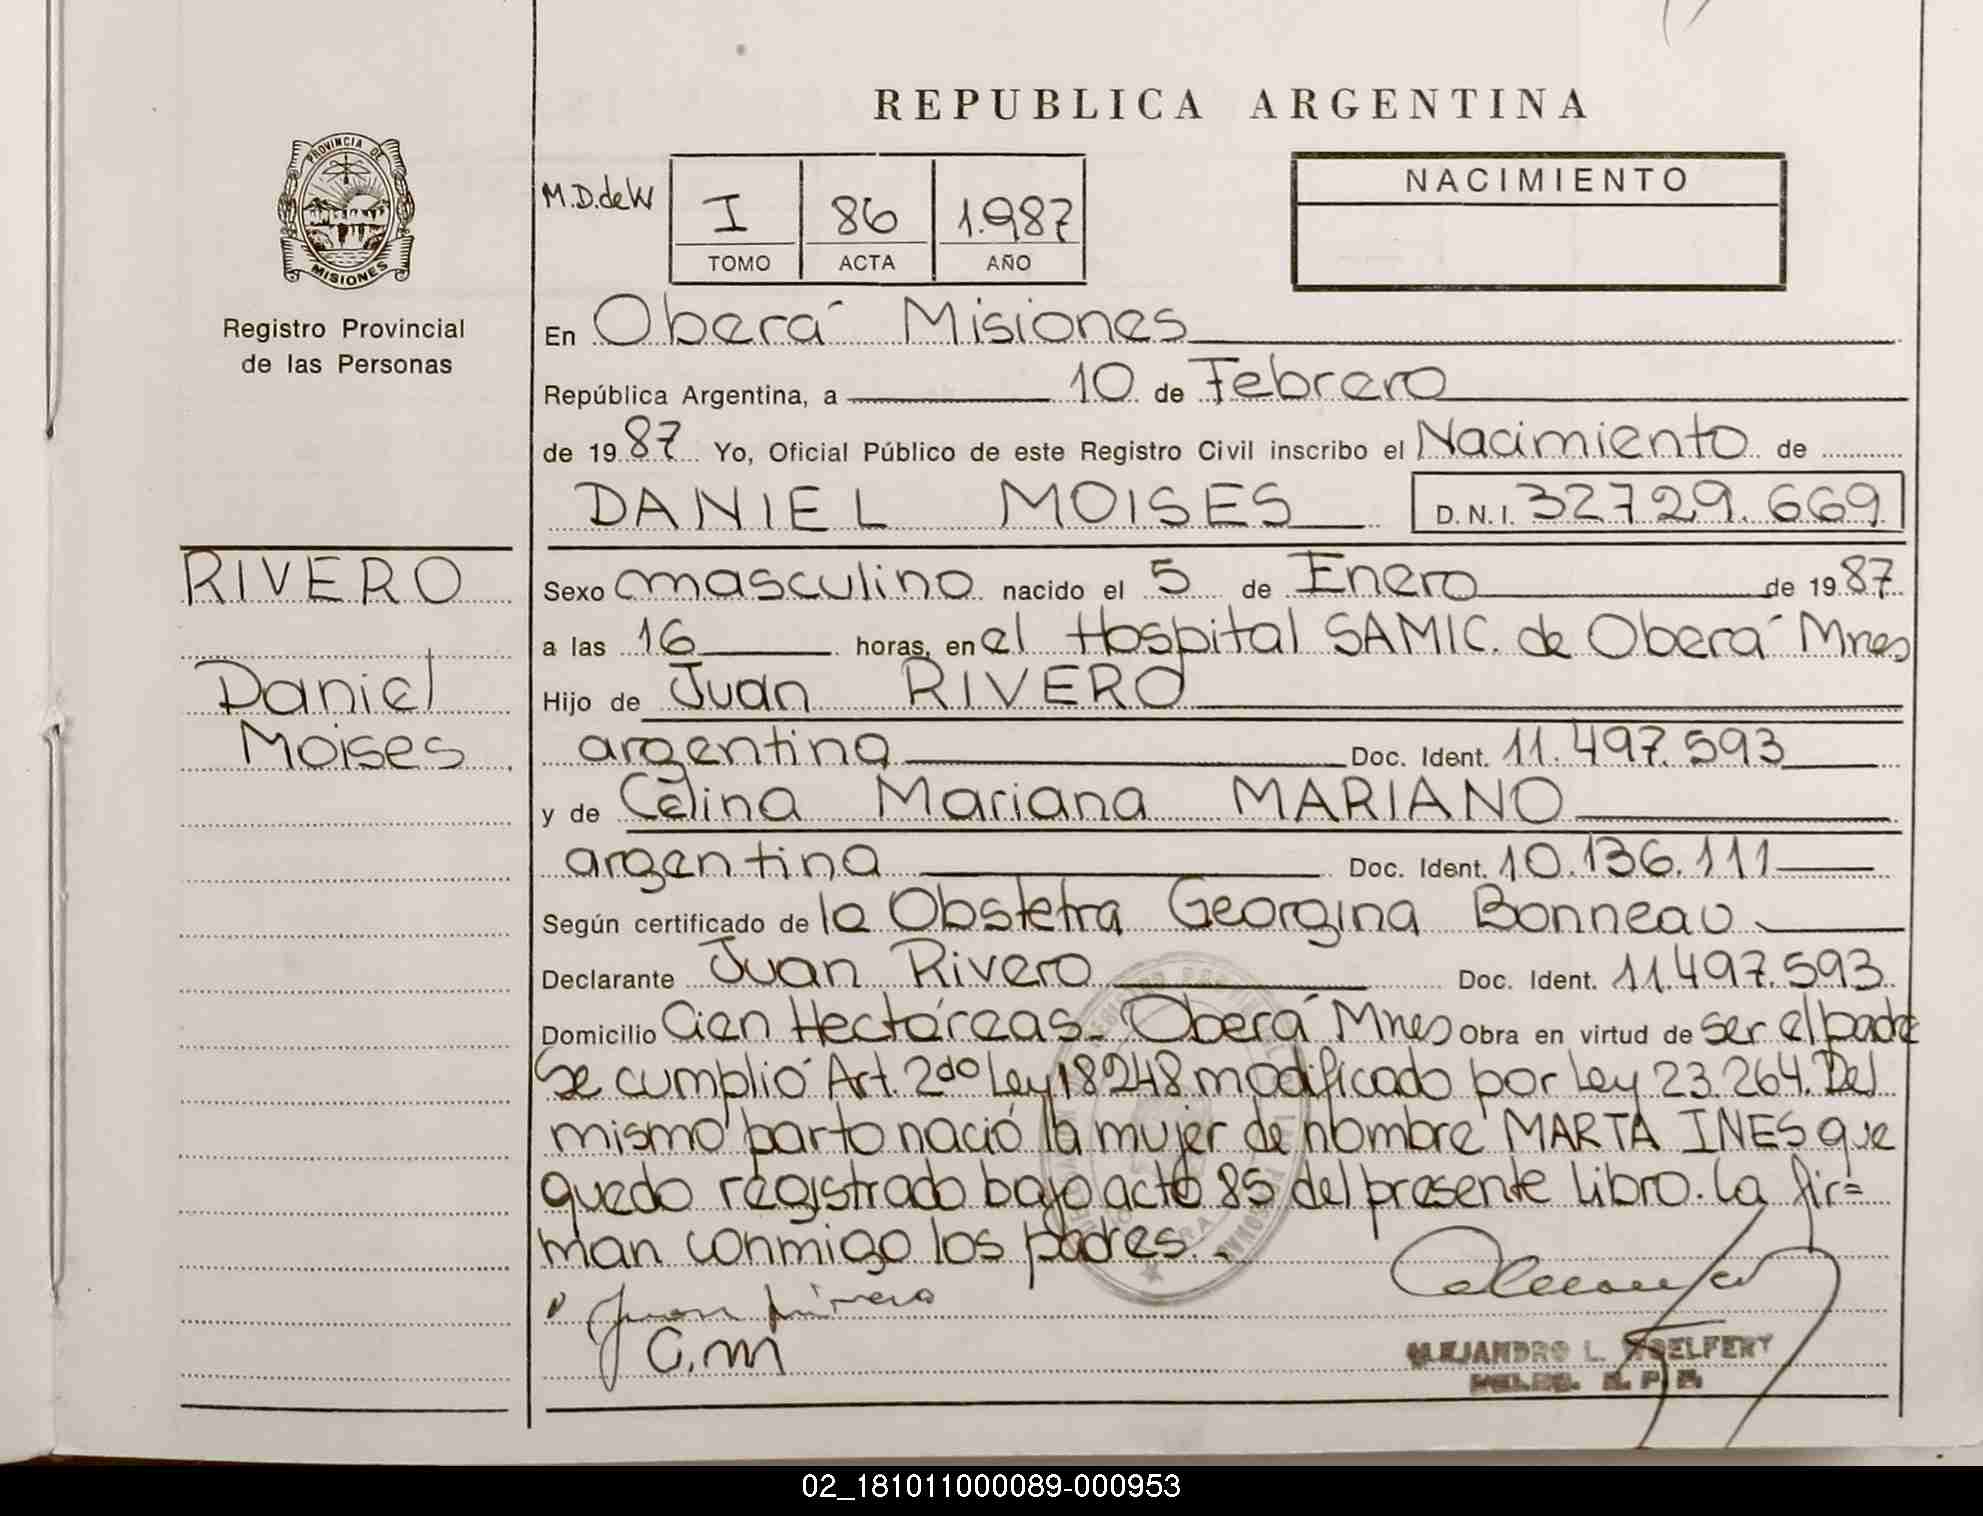 REPUBLICA ARGENTINA
PROVINCIA DE
MISIONES
Registro Provincial
de las Personas
M.D.deW
I 86 1.987
TOMO ACTA AÑO
NACIMIENTO
En Oberá Misiones
República Argentina, a 10 de Febrero
de 19 87 Yo, Oficial Público de este Registro Civil inscribo el Nacimiento de
DANIEL MOISES D.N.I. 32729.669
RIVERO
Daniel
Moises
Sexo masculino nacido el 5 de Enero de 19 87
a las 16 horas, en el Hospital SAMIC. de Oberá Mnes
Hijo de Juan RIVERO
argentina Doc. Ident. 11.497.593
y de Celina Mariana MARIANO
argentina Doc. Ident. 10.136.111
Según certificado de la Obstetra Georgina Bonneau
Declarante Juan Rivero Doc. Ident. 11.497.593
Domicilio Cien Hectáreas- Oberá Mnes Obra en virtud de ser el padre
Se cumplió Art. 2do Ley 18248 modificado por Ley 23.264. Del
mismo parto nació la mujer de nombre MARTA INES que
quedo registrado bajo acta 85 del presente libro. La fir=
man conmigo los padres.
Juan Rivero
C.m
ALEJANDRO L.
02_181011000089-000953